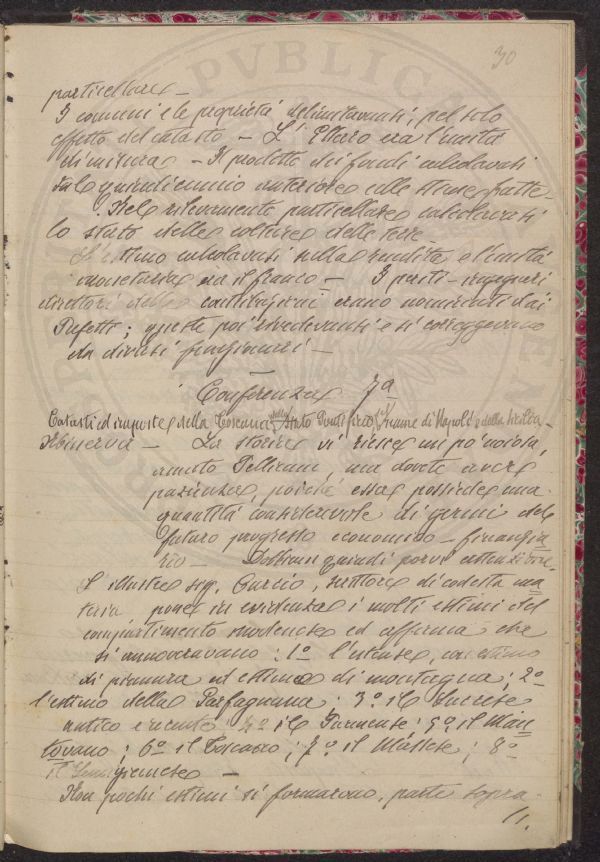 30
particellare —
I comuni e le proprietà delimitavansi, pel solo
effetto del catasto — L'Ettaro era l'unità
di misura — Il prodotto dei fondi calcolavasi
sul quindicennio anteriore colle stesse fatte-
Nel rilevamento particellare calcolavasi
lo stato delle colture delle terre
L'estimo calcolavasi sulla rendita e l'unità
monetaria era il franco — I periti - ingegneri
direttori delle contribuzioni erano nominati dai
Prefetti; queste poi rivedevansi e si correggevano
da diversi funzionari —
Conferenza 7a
Catasti ed imposte della Toscana dello Stato Pontificio, Reame di Napoli e della Sicilia
La storia vi riesce un po' noiosa,
amato Pellicani, ma dovete avere
pazienza, poiché essa possiede una
quantità considerevole di germi del
futuro progresso economico - finanzia
rio — Dobbiam quindi porvi attenzione.
L'illustre sig. Curcio, scrittore di codesta ma
teria pone in evidenza i molti estimi del
compartimento modenese ed afferma che
si annoveravano: 1° l'estense, con estimo
di pianura ed estimo di montagna; 2°
l'estimo della Garfagnana; 3° il Lucchese
antico e recente 4° il Parmense; 5° il Man
tovano; 6° il Toscano; 7° il Massese; 8°
il Lunigianese —
Non pochi estimi si formarono, parte sopra
//.